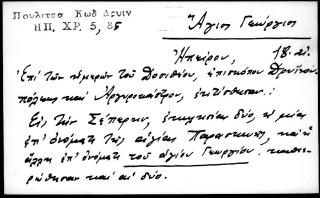 Πουλίτσα Κωδ Δρυιν
ΗΠ. ΧΡ. 5, 85
Ἅγιος Γεώργιος
Ἠπείρου, 18 αἰ.
Ἐπὶ τῶν ἡμερῶν τοῦ Δοσιθέου, ἐπισκόπου Δρυϊνου-
πόλεως καὶ Ἀργυροκάστρου, ἐκτίσθησαν:
Εἰς τὴν Σέπεριν, ἐκκλησίαι δύο, ἡ μία
ἐπ' ὀνόματι τῆς ἁγίας Παρασκευῆς, καὶ ἡ
ἄλλη ἐπ' ὀνόματι τοῦ ἁγίου Γεωργίου. καθιε-
ρώθησαν καὶ αἱ δύο.